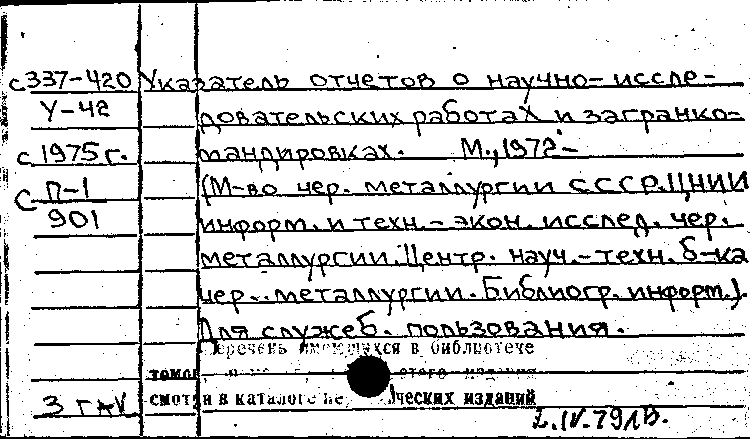 с337-420 Указатель отчетов о научно-иссле-
У-42 довательских работах и загранко-
с 1975г. мандировках. М., 1972-
С П-1 (М-во чер. металлургии СССР. ЦНИИ
901 информ. и техн.-экон. исслед. чер.
металлургии. Центр. науч.-техн. б-ка
чер. металлургии. Библиогр. информ.).
Для служеб. пользования.
Перечень имеющихся в библиотеке
томов
смотри в каталоге ческих изданий
3 ГАК
2.IV.79